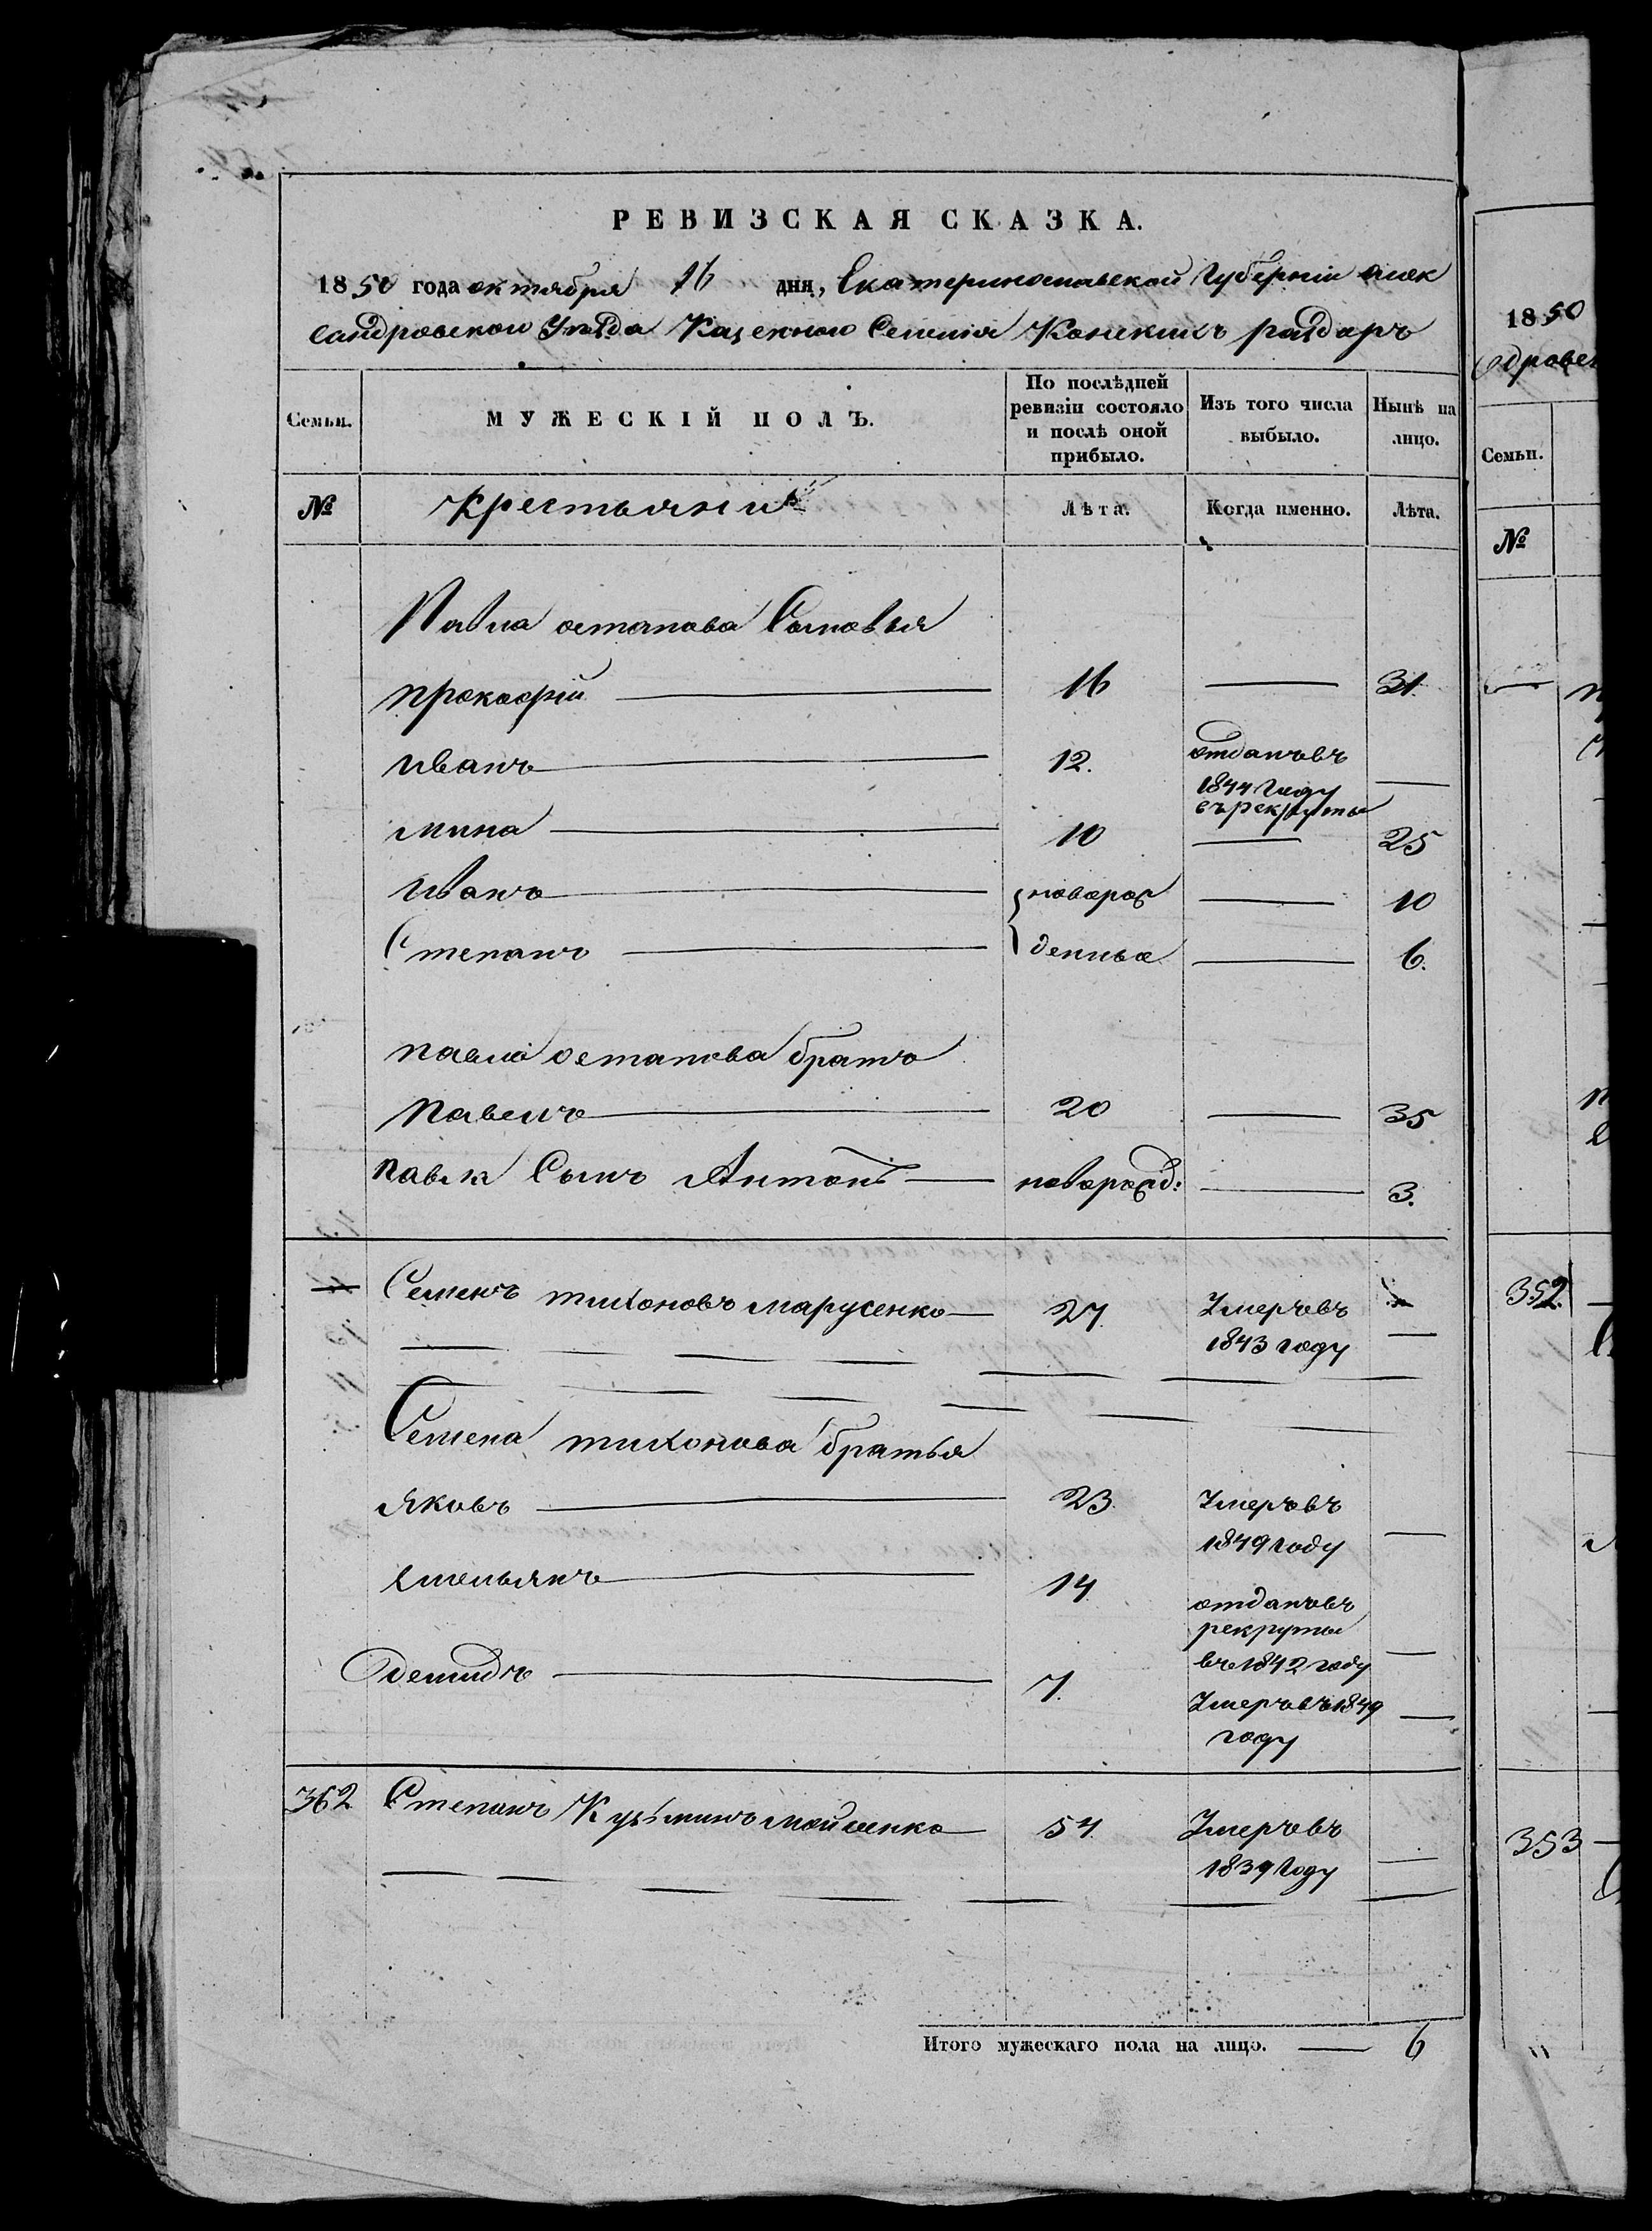 РЕВИЗСКАЯ СКАЗКА.
1850 года октября 16 дня, Екатеринославской Губерніи алек
сандровскои Уѣзда Казенной Селенія Конскихъ раздоръ
Семьи. МУЖЕСКІЙ ПОЛЪ. По послѣдней ревизіи состояло и послѣ оной прибыло. Изъ того числа выбыло. Нынѣ на лицо.
№ Крестьяни Лѣта. Когда именно. Лѣта.
Павла остапова Сыновья
прокофiй 16 31.
иванъ 12. отданъвъ
1844 Году
въ рекруты
мина 10 25
Иванъ новорож 10
Степанъ денные 6.
павла остапова братъ
Павелъ 20 35
павла Сынъ Антонъ новорожд: 3.
Семенъ тихоновъ марусенко 27. Умеръвъ
1843 году
Семена тихонова братья
Яковъ 23. Умеръвъ
1849 году
Емельянъ 14. отданъвъ
рекруты
въ 1842 году
демидъ 7. Умеръвъ 1849
году
362 Степанъ Кузьминъ 54. Умеръвъ
1839 Году
Итого мужескаго пола на лицо. 6
1850
Семьи.
№
352.
353